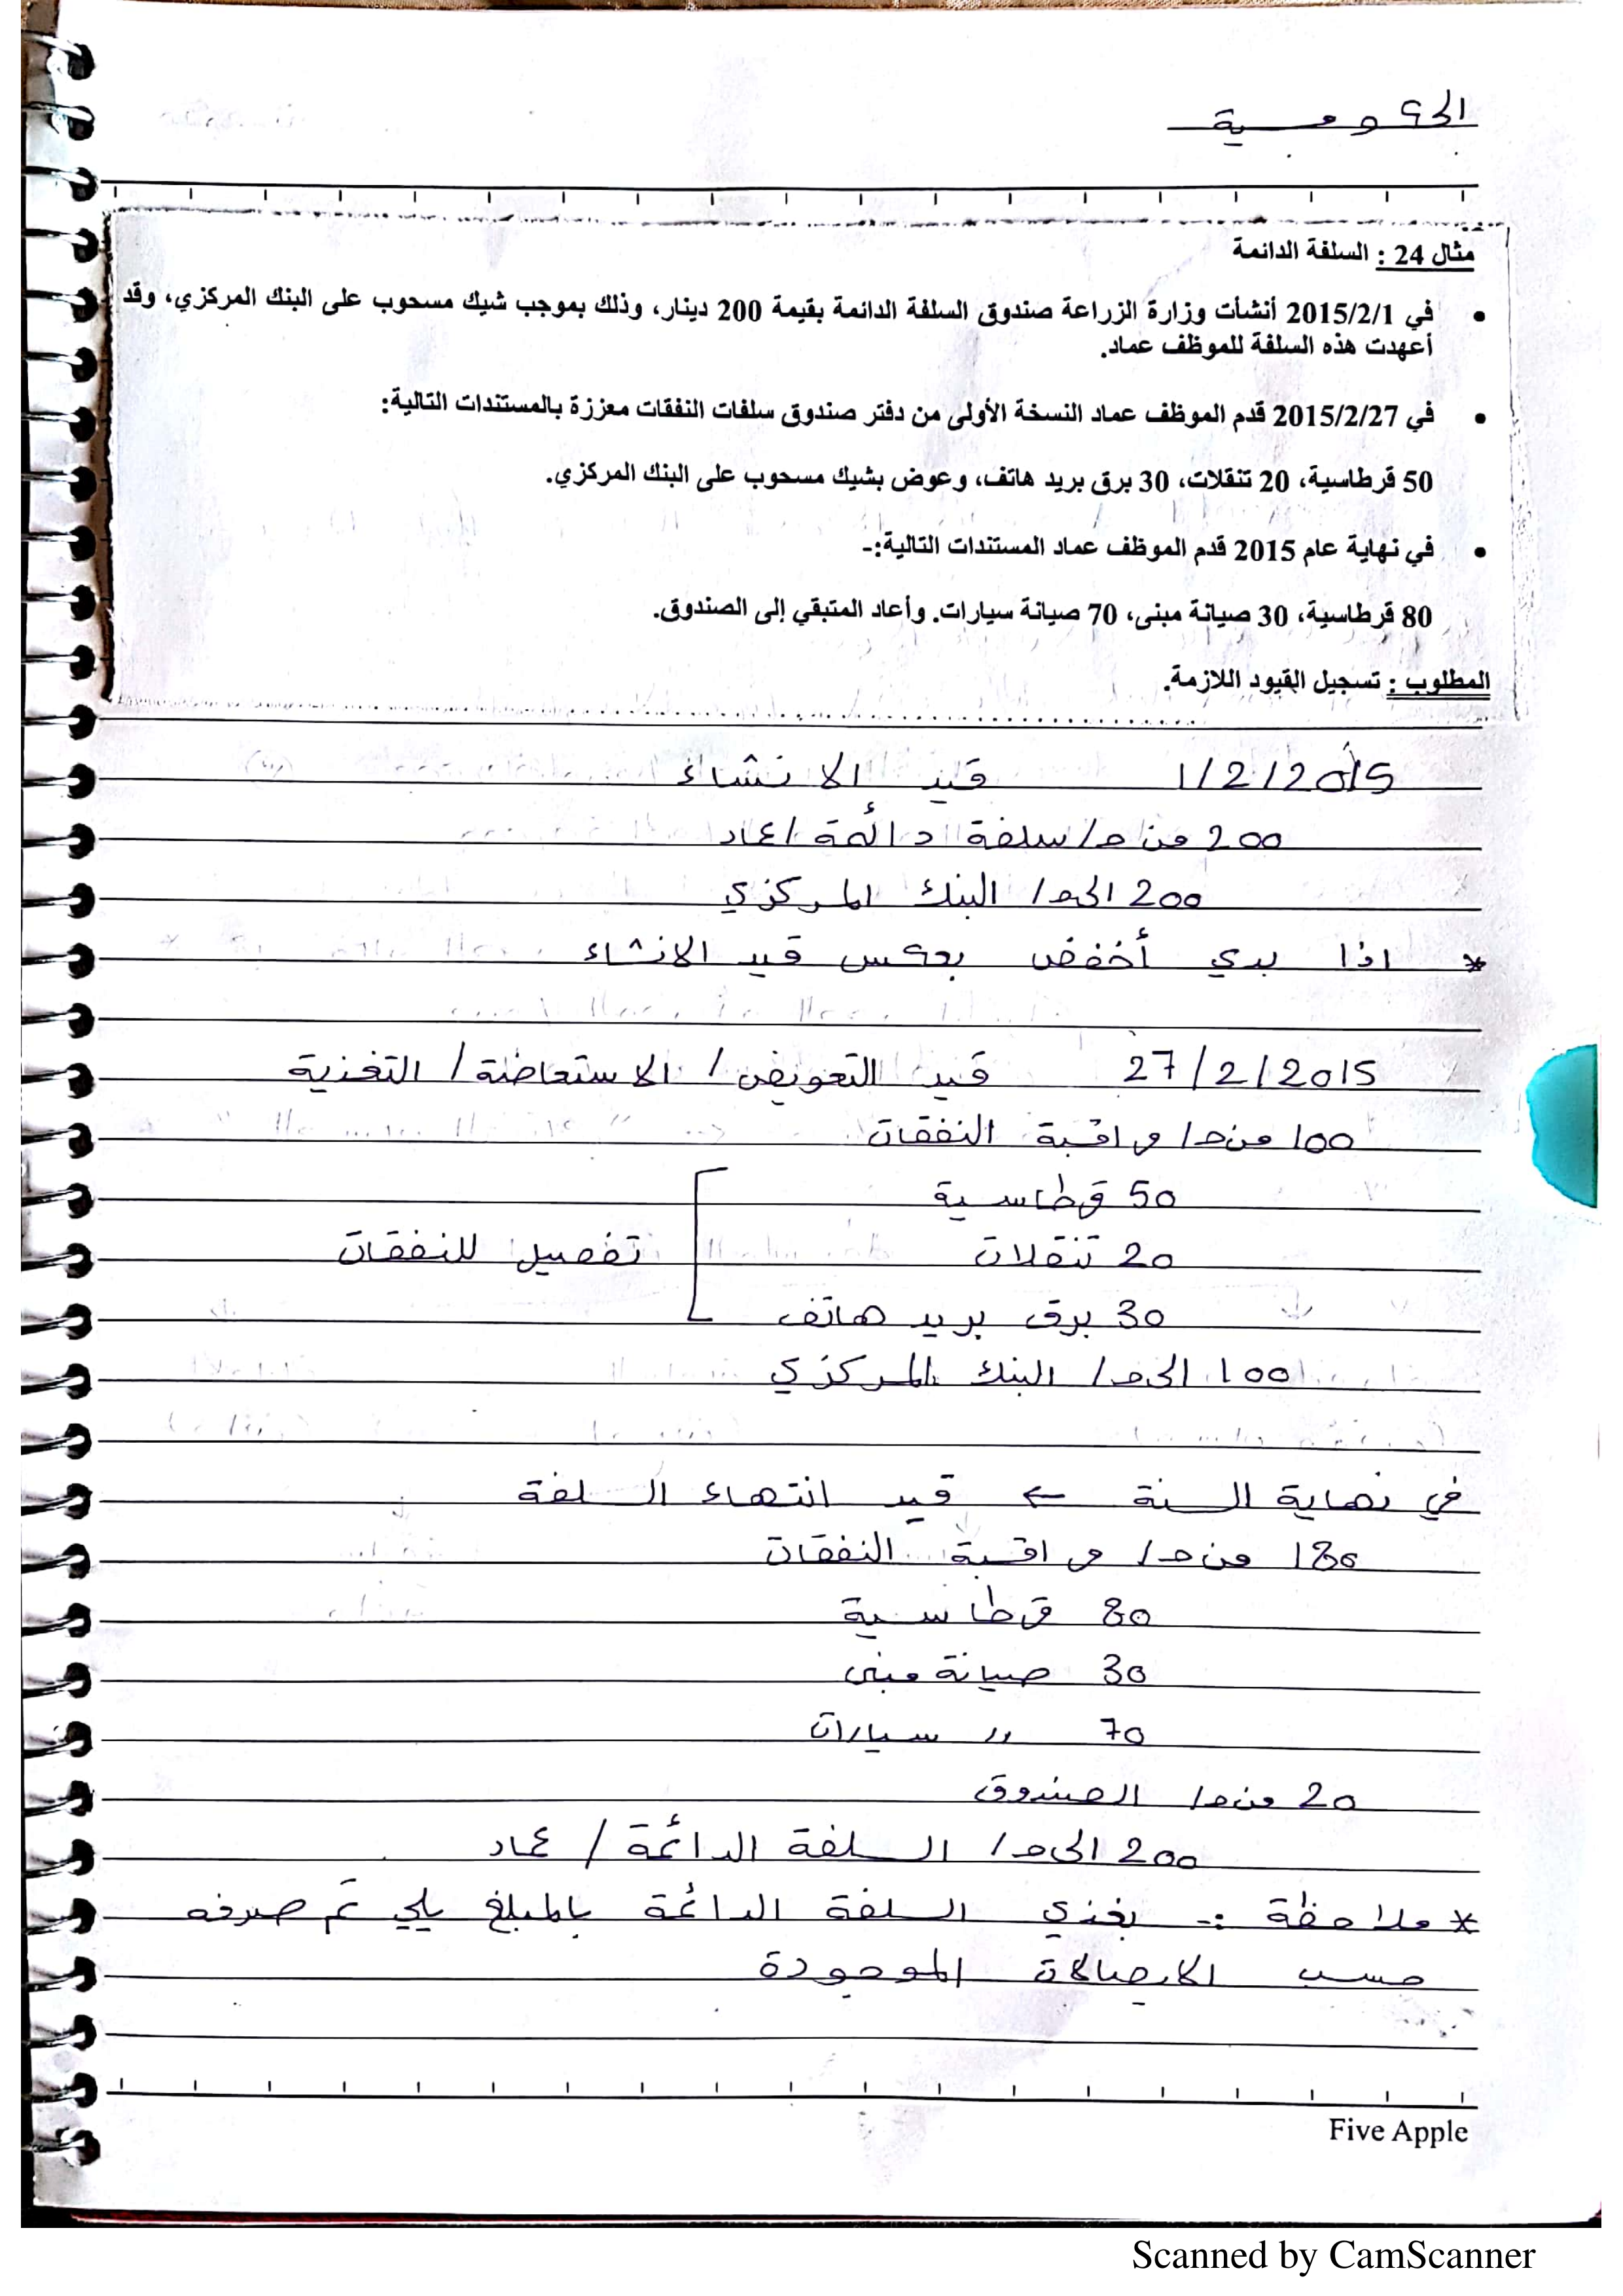 الحكومية
مثال 24 : السلفة الدائمة
• في 2015/2/1 أنشأت وزارة الزراعة صندوق السلفة الدائمة بقيمة 200 دينار، وذلك بموجب شيك مسحوب على البنك المركزي، وقد
أعهدت هذه السلفة للموظف عماد.
• في 2015/2/27 قدم الموظف عماد النسخة الأولى من دفتر صندوق سلفات النفقات معززة بالمستندات التالية:
50 قرطاسية، 20 تنقلات، 30 برق بريد هاتف، وعوض بشيك مسحوب على البنك المركزي.
• في نهاية عام 2015 قدم الموظف عماد المستندات التالية:-
80 قرطاسية، 30 صيانة مبنى، 70 صيانة سيارات. وأعاد المتبقي إلى الصندوق.
المطلوب : تسجيل القيود اللازمة.
1/2/2015 قيد الانشاء
200 من ح/ سلفة دائمة / عماد
200 الى ح/ البنك المركزي
* اذا بدي أخفض بعكس قيد الانشاء
27/2/2015 قيد التعويض / الاستعاضة / التغذية
100 من ح/ مراقبة النفقات
50 قرطاسية
20 تنقلات تفصيل للنفقات
30 برق بريد هاتف
100 الى ح/ البنك المركزي
في نهاية السنة ← قيد انتهاء السلفة
180 من ح/ مراقبة النفقات
80 قرطاسية
30 صيانة مبنى
70 " سيارات
20 من ح/ الصندوق
200 الى ح/ السلفة الدائمة / عماد
* ملاحظة :- بغذي السلفة الدائمة بالمبلغ يلي تم صرفه
حسب الايصالات الموجودة
Five Apple
Scanned by CamScanner